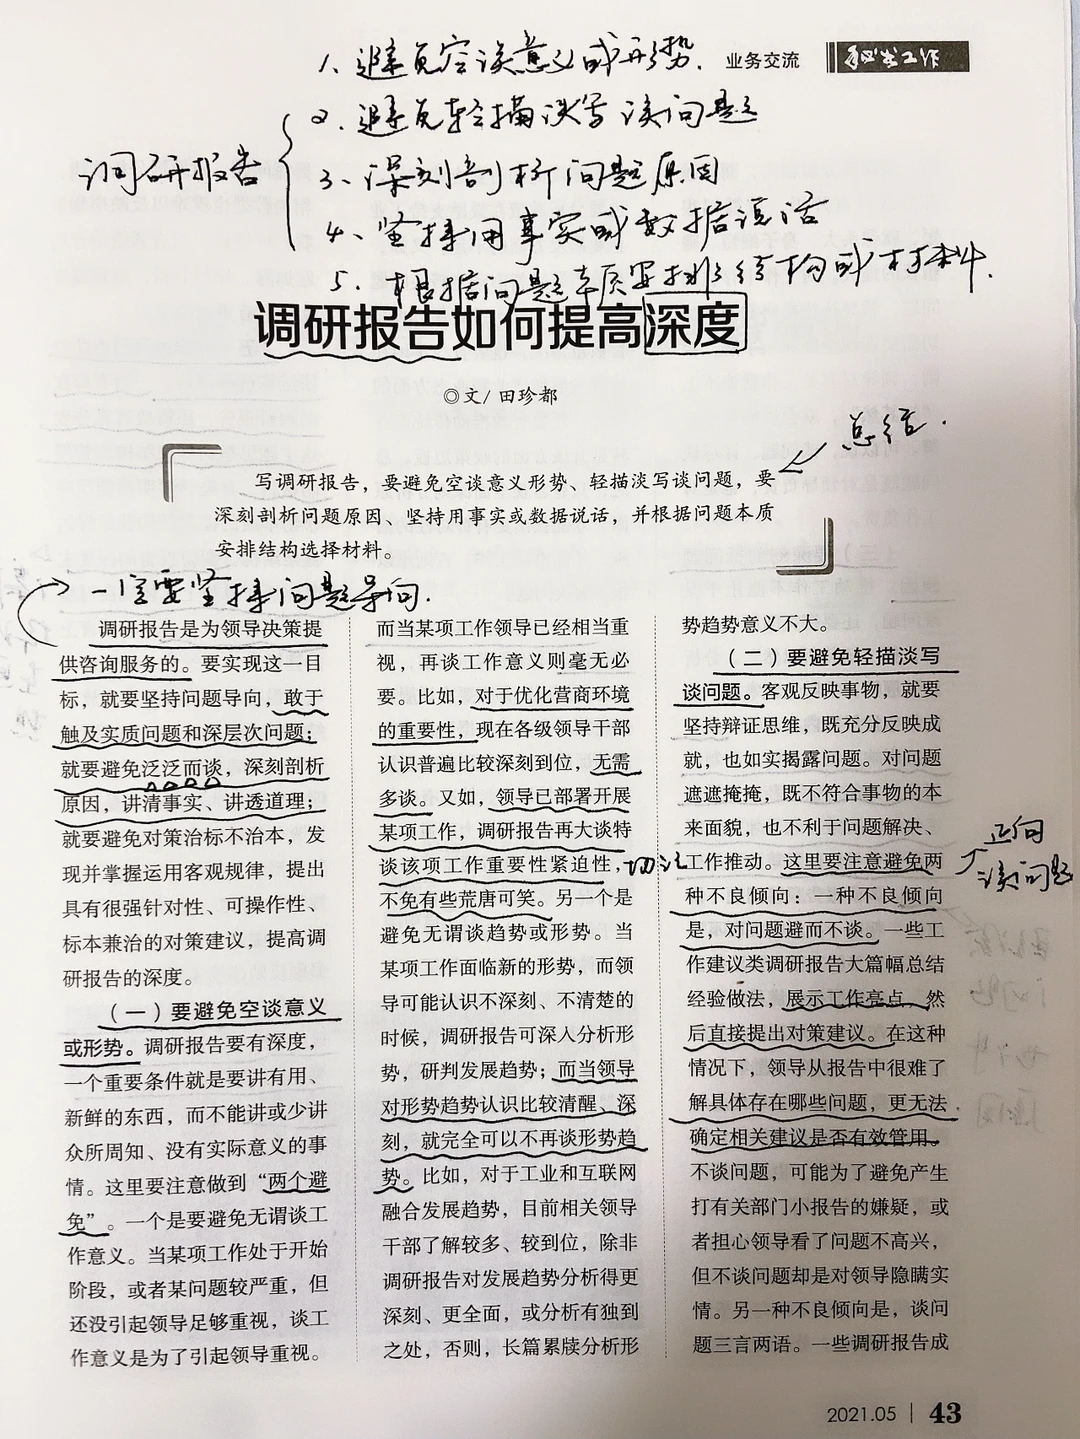 1、避免空谈意义或形势.
业务交流
秘书工作
2、避免轻描淡写谈问题
调研报告
3、深刻剖析问题原因
4、坚持用事实或数据说话
5、根据问题本质安排结构或材料.
调研报告如何提高深度
◎文/ 田珍都
总结.
写调研报告，要避免空谈意义形势、轻描淡写谈问题，要
深刻剖析问题原因、坚持用事实或数据说话，并根据问题本质
安排结构选择材料。
一定要坚持问题导向.
调研报告是为领导决策提
供咨询服务的。要实现这一目
标，就要坚持问题导向，敢于
触及实质问题和深层次问题；
就要避免泛泛而谈，深刻剖析
原因，讲清事实、讲透道理；
就要避免对策治标不治本，发
现并掌握运用客观规律，提出
具有很强针对性、可操作性、
标本兼治的对策建议，提高调
研报告的深度。
（一）要避免空谈意义
或形势。调研报告要有深度，
一个重要条件就是要讲有用、
新鲜的东西，而不能讲或少讲
众所周知、没有实际意义的事
情。这里要注意做到“两个避
免”。一个是要避免无谓谈工
作意义。当某项工作处于开始
阶段，或者某问题较严重，但
还没引起领导足够重视，谈工
作意义是为了引起领导重视。
而当某项工作领导已经相当重
视，再谈工作意义则毫无必
要。比如，对于优化营商环境
的重要性，现在各级领导干部
认识普遍比较深刻到位，无需
多谈。又如，领导已部署开展
某项工作，调研报告再大谈特
谈该项工作重要性紧迫性，
不免有些荒唐可笑。另一个是
避免无谓谈趋势或形势。当
某项工作面临新的形势，而领
导可能认识不深刻、不清楚的
时候，调研报告可深入分析形
势，研判发展趋势；而当领导
对形势趋势认识比较清醒、深
刻，就完全可以不再谈形势趋
势。比如，对于工业和互联网
融合发展趋势，目前相关领导
干部了解较多、较到位，除非
调研报告对发展趋势分析得更
深刻、更全面，或分析有独到
之处，否则，长篇累牍分析形
切记
势趋势意义不大。
（二）要避免轻描淡写
谈问题。客观反映事物，就要
坚持辩证思维，既充分反映成
就，也如实揭露问题。对问题
遮遮掩掩，既不符合事物的本
来面貌，也不利于问题解决、
工作推动。这里要注意避免两
种不良倾向：一种不良倾向
是，对问题避而不谈。一些工
作建议类调研报告大篇幅总结
经验做法，展示工作亮点，然
后直接提出对策建议。在这种
情况下，领导从报告中很难了
解具体存在哪些问题，更无法
确定相关建议是否有效管用。
不谈问题，可能为了避免产生
打有关部门小报告的嫌疑，或
者担心领导看了问题不高兴，
但不谈问题却是对领导隐瞒实
情。另一种不良倾向是，谈问
题三言两语。一些调研报告成
正向
谈问题
2021.05 | 43